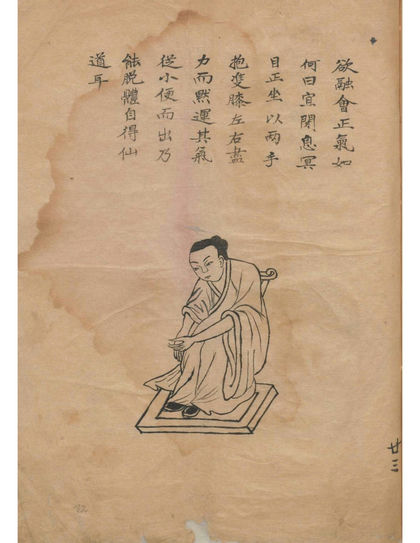 欲融會正氣如
何曰宜閉息冥
目正坐以兩手
抱雙膝左右盡
力而黙運其氣
從小便而出乃
能脱體自得仙
道耳
廿三